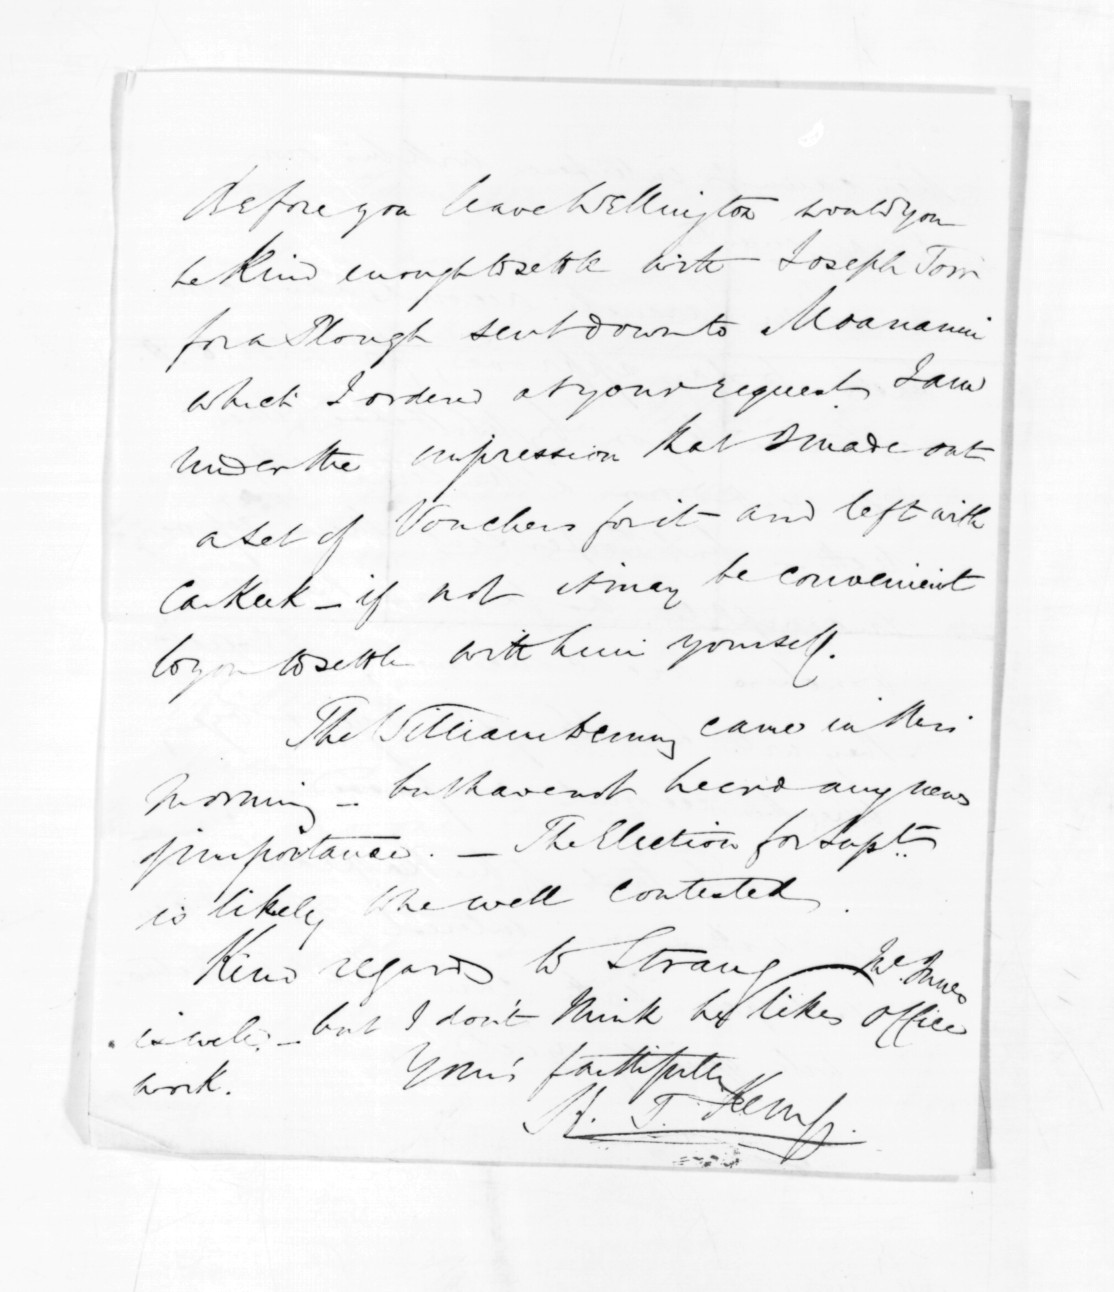 Before you leave Wellington would you
be Kind enough to settle with Joseph Torr
for a Plough sent down to Moananui
which I ordered at your request, I am
under the impression that I made out
a set of Vouchers for it and left with
CarKeek - if not it may be convenient
to you to settle with him yourself.
The William Denny came in this
morning - but have not heard any news
of importance. - The Election for Supt.
is likely to be well contested.
Kind regards to Strang - McInnes
is well. - but I don't think he likes office
work. Your's faithfully
H. T. Kemp.